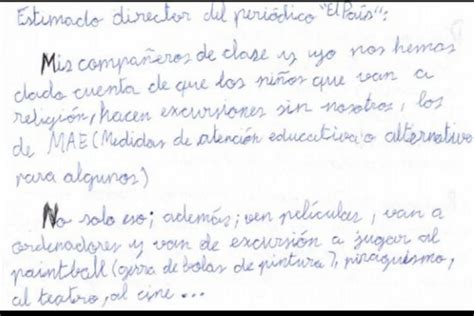 Estimado director del periódico "El País":
Mis compañeros de clase y yo nos hemos
dado cuenta de que los niños que van a
religión, hacen excursiones sin nosotros, los
de MAE (Medidas de atención educativa o alternativa
para algunos)
No solo eso; además; ven películas, van a
ordenadores y van de excursión a jugar al
paintball (gerra de bolas de pintura), piraguismo,
al teatro, al cine ...